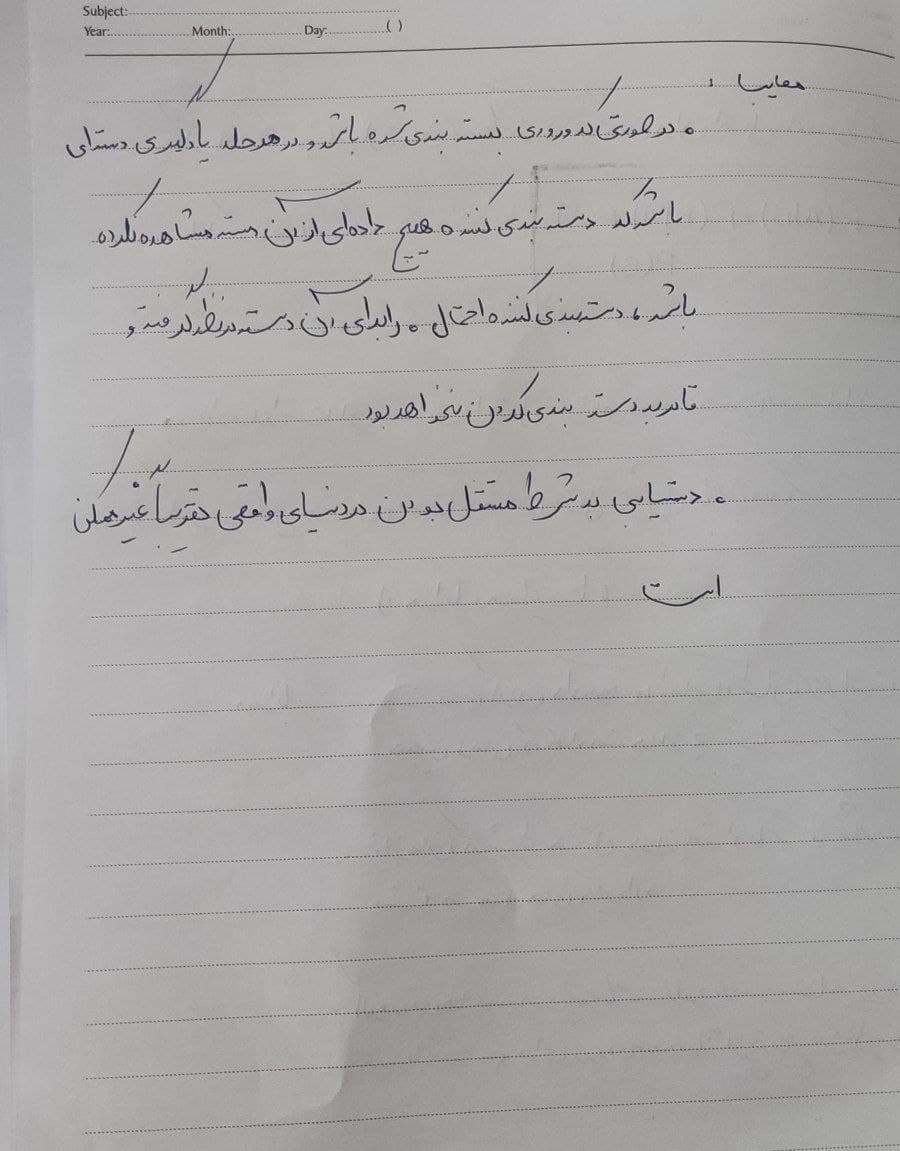 Subject:
Year: Month: Day: ( )
معایب :
• در صورتی که ورودی بسته بندی شده باشد و در مرحله یادگیری دسته‌ای
باشد که دسته بندی کننده هیچ داده‌ای از آن دسته مشاهده نکرده
باشد، دسته بندی کننده احتمال ۰ را برای آن دسته در نظر گرفته و
قادر به دسته بندی کردن نخواهد بود
• دستیابی به شرط مستقل بودن در دنیای واقعی تقریباً غیر ممکن
است